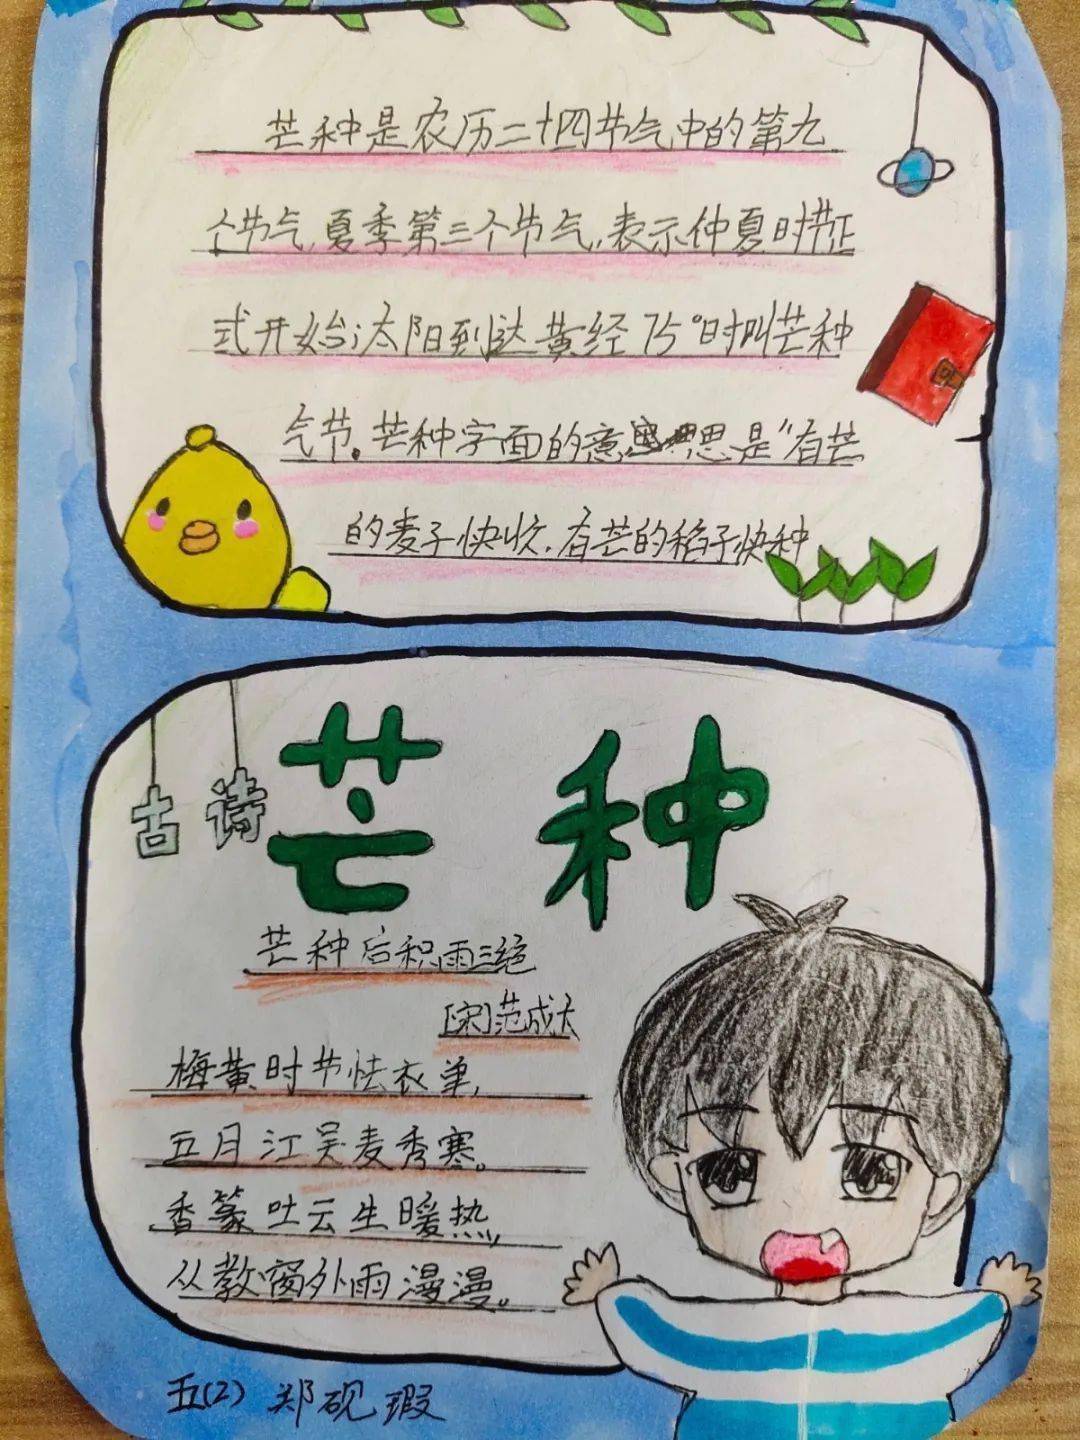 芒种是农历二十四节气中的第九
个节气,夏季第三个节气,表示仲夏时节正
式开始;太阳到达黄经75°时叫芒种
气节。芒种字面的意思是“有芒
的麦子快收,有芒的稻子快种
古诗
芒种
芒种后积雨三绝
[宋]范成大
梅黄时节怯衣单,
五月江吴麦秀寒。
香篆吐云生暖热,
从教窗外雨漫漫。
五(2) 郑砚瑕